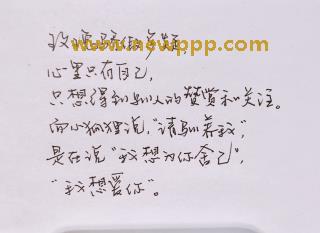 玫瑰骄傲多疑，
www.newppp.com
心里只有自己，
只想得到别人的赞赏和关注。
而小狐狸说，“请驯养我”，
是在说“我想为你舍己”，
“我想爱你”。